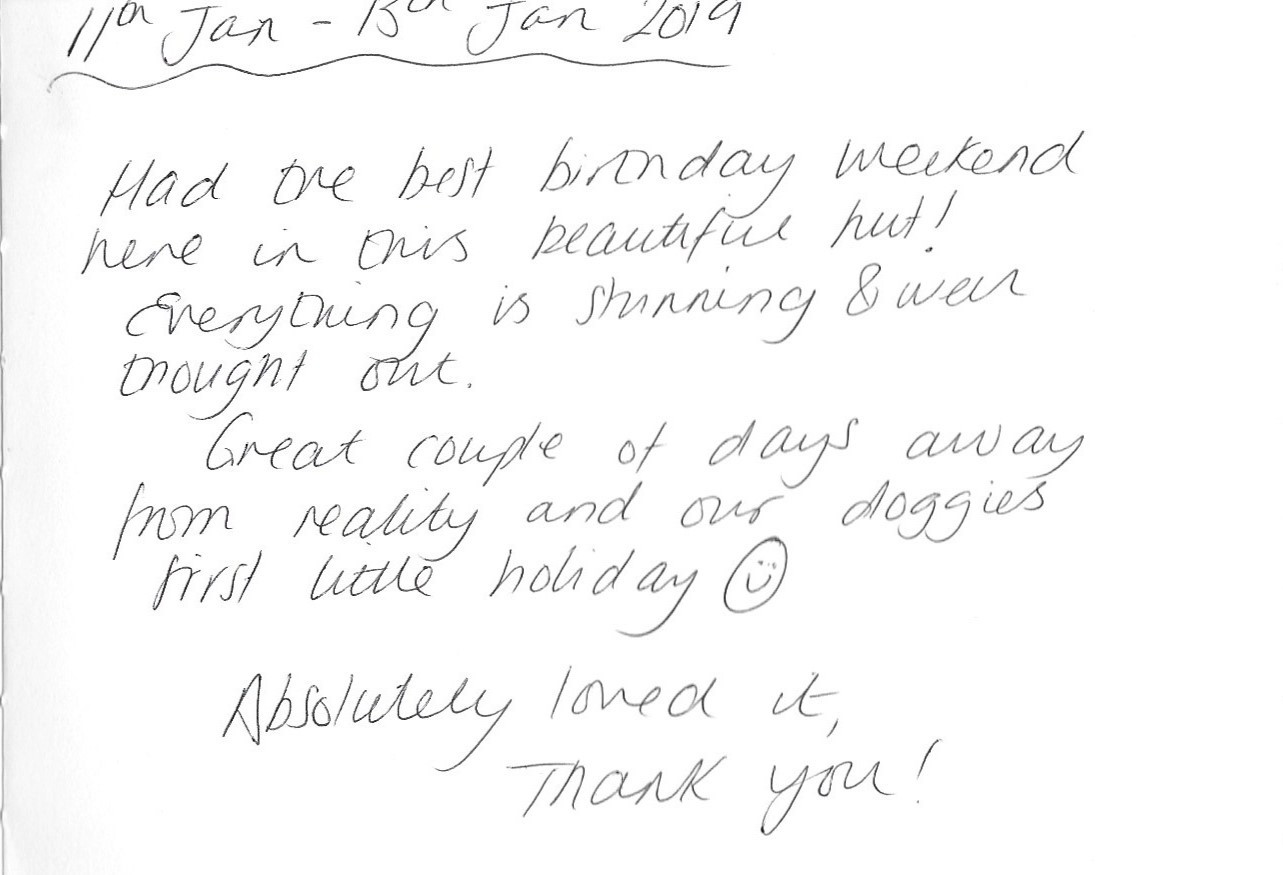 11th Jan - 13th Jan 2019
Had the best birthday weekend
here in this beautiful hut!
Everything is stunning & well
thought out.
Great couple of days away
from reality and our doggies
first little holiday ☺
Absolutely loved it,
Thank you!